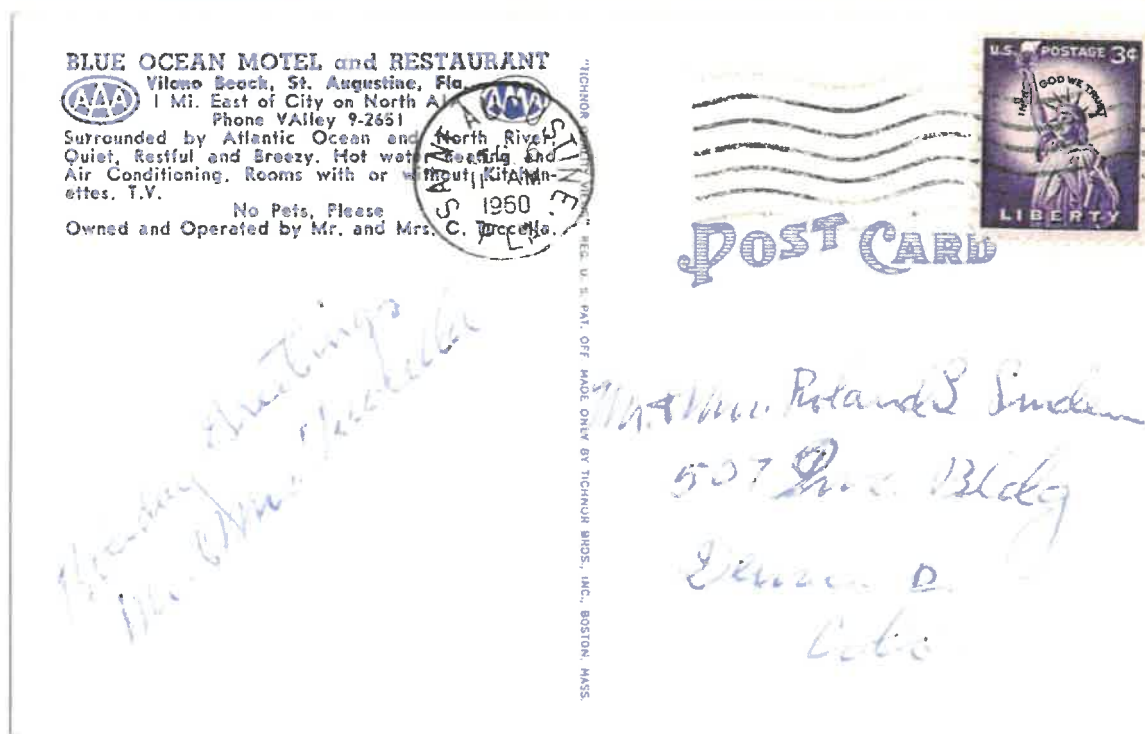 BLUE OCEAN MOTEL and RESTAURANT
AAA
Vilano Beach, St. Augustine, Fla.
AAA
1 Mi. East of City on North A1
Phone VAlley 9-2651
Surrounded by Atlantic Ocean and North River.
Quiet, Restful and Breezy. Hot water heating and
Air Conditioning. Rooms with or without Kitchen-
ettes. T.V.
No Pets, Please
Owned and Operated by Mr. and Mrs. C. Tuccella.
SAINT AUGUSTINE, FLA
11 AM
1960
"TICHNOR QUALITY VIEWS" REG. U. S. PAT. OFF. MADE ONLY BY TICHNOR BROS., INC., BOSTON, MASS.
U.S. POSTAGE 3¢
IN GOD WE TRUST
LIBERTY
POST CARD
Holiday Greetings
Mr. & Mrs. Tuccella
Mr. & Mrs. Roland L
507 Bldg
Denver
Colo